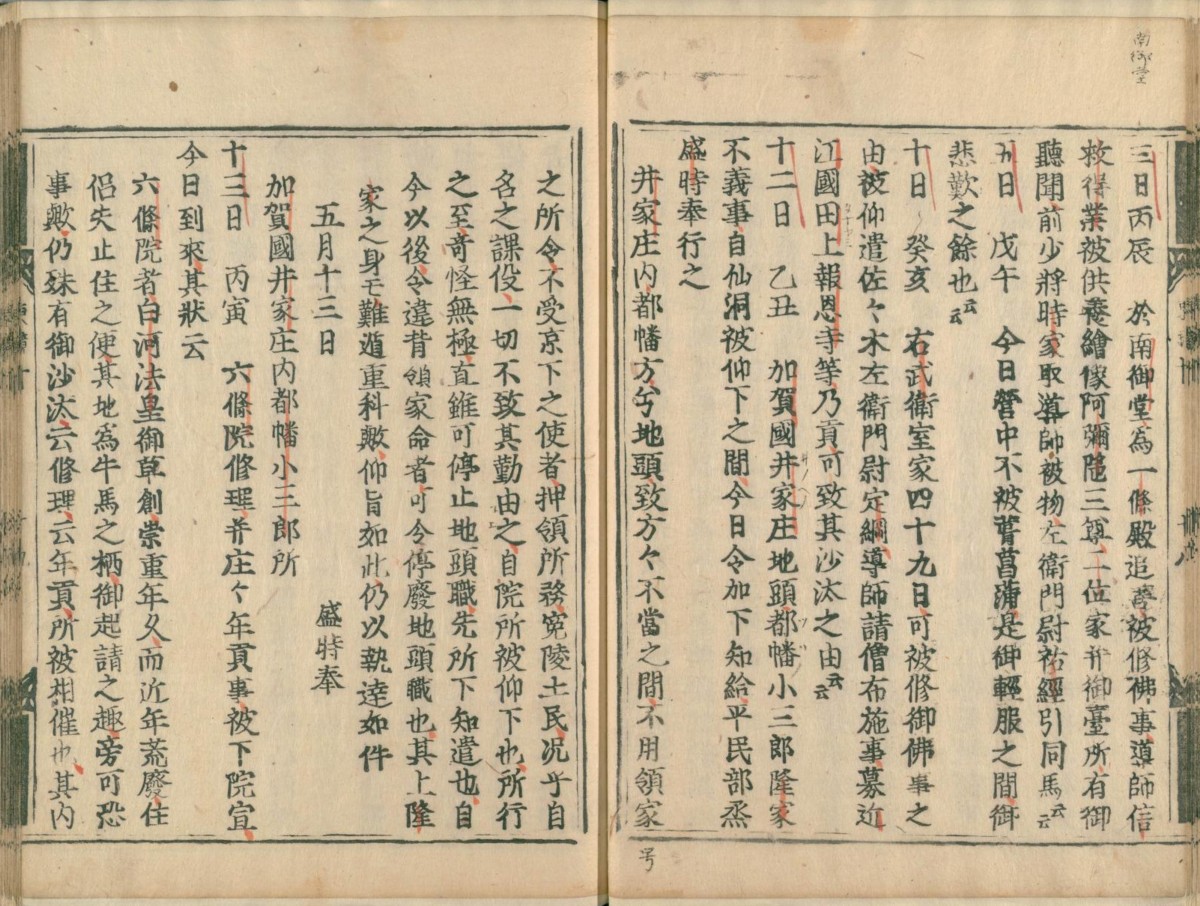 南御堂
三日丙辰　於南御堂為一條殿追善被修佛事導師信
救得業被供養繪像阿彌陀三尊二位家并御臺所有御
聴聞前少將時家取導師被物左衛門尉祐經引同馬云云
五日　戊午　今日營中不被葺菖蒲是御輕服之間御
悲歎之餘也云云
十日　癸亥　右武衛室家四十九日可被修御佛事之
由被仰遣佐々木左衛門尉定綱導師請僧布施事募近
江國田上報恩寺等乃貢可致其沙汰之由云云
十二日　乙丑　加賀國井家庄地頭都幡小三郎隆家
不義事自仙洞被仰下之間今日令加下知給平民部烝
盛時奉行之
井家庄内都幡方兮地頭致方々不當之間不用領家
号
之所令不受京下之使者押領所務寃陵土民况乎自
名之課役一切不致其勤由之自院所被仰下也所行
之至竒怪無極直雖可停止地頭職先所下知遣也自
今以後令違背領家命者可令停廢地頭職也其上隆
家之身于難遁重科歟仰旨如此仍以執達如件
五月十三日　　　　　　　　盛時奉
加賀國井家庄内都幡小三郎所
十三日　丙寅　六條院修理并庄々年貢事被下院宣
今日到來其状云
六條院者白河法皇御草創崇重年久而近年荒廢住
侶失止住之便其地為牛馬之栖御起請之趣旁可恐
事歟仍殊有御沙汰云修理云年貢所被相催也其内